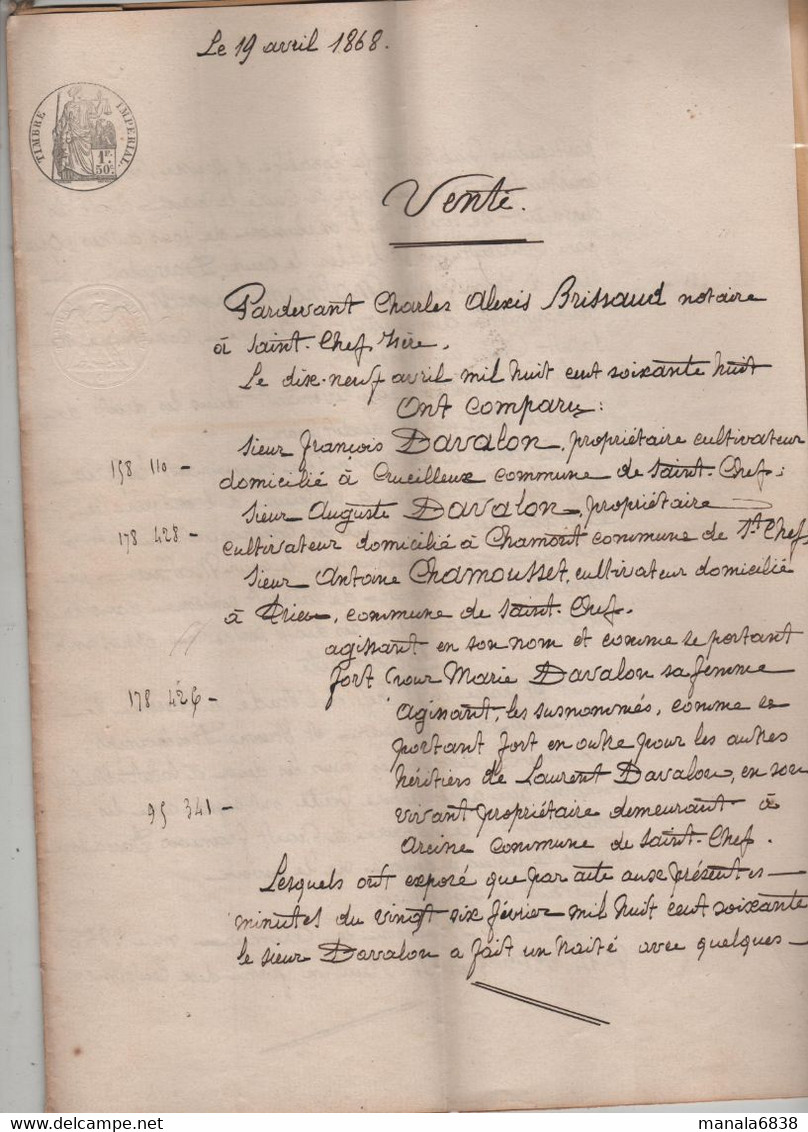 Le 19 avril 1868.
TIMBRE IMPERIAL
1F.
50c.
Vente.
Pardevant Charles Alexis Brissaud notaire
à Saint-Chef, Isère.
Le dix-neuf avril mil huit cent soixante huit
Ont comparu:
Sieur François Davalon, propriétaire cultivateur
158 110 -
domicilié à Crucilleux commune de Saint-Chef;
Sieur Auguste Davalon, propriétaire
178 428 -
cultivateur domicilié à Chamont commune de St Chef,
Sieur Antoine Chamousset, cultivateur domicilié
à Trieu, commune de Saint-Chef.
agissant en son nom et comme se portant
fort pour Marie Davalon sa femme
178 426 -
Agissant, les susnommés, comme se
portant fort en outre pour les autres
héritiers de Laurent Davalon, en son
95 341 -
vivant propriétaire demeurant à
Arcine commune de Saint-Chef.
Lesquels ont exposé que par acte aux présentes
minutes du vingt six février mil huit cent soixante
le sieur Davalon a fait un traité avec quelques
manala6838